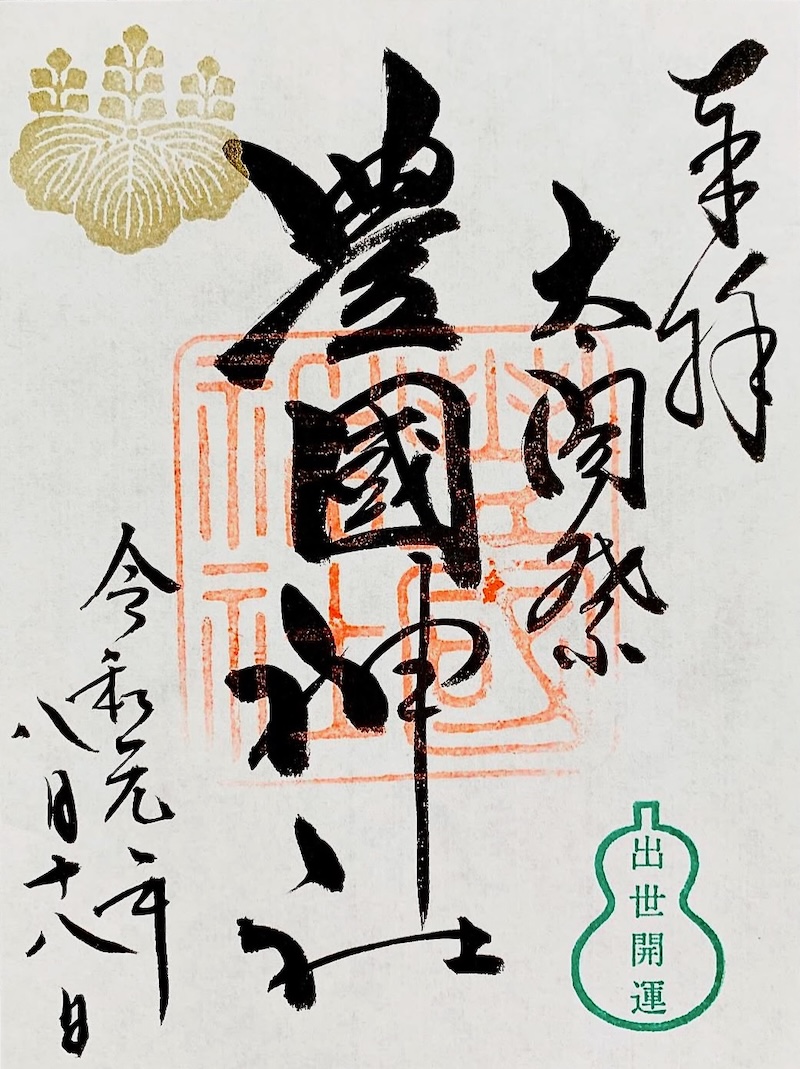 奉拝
太閤祭
豊國神社
令和元年
八月十八日
出世開運